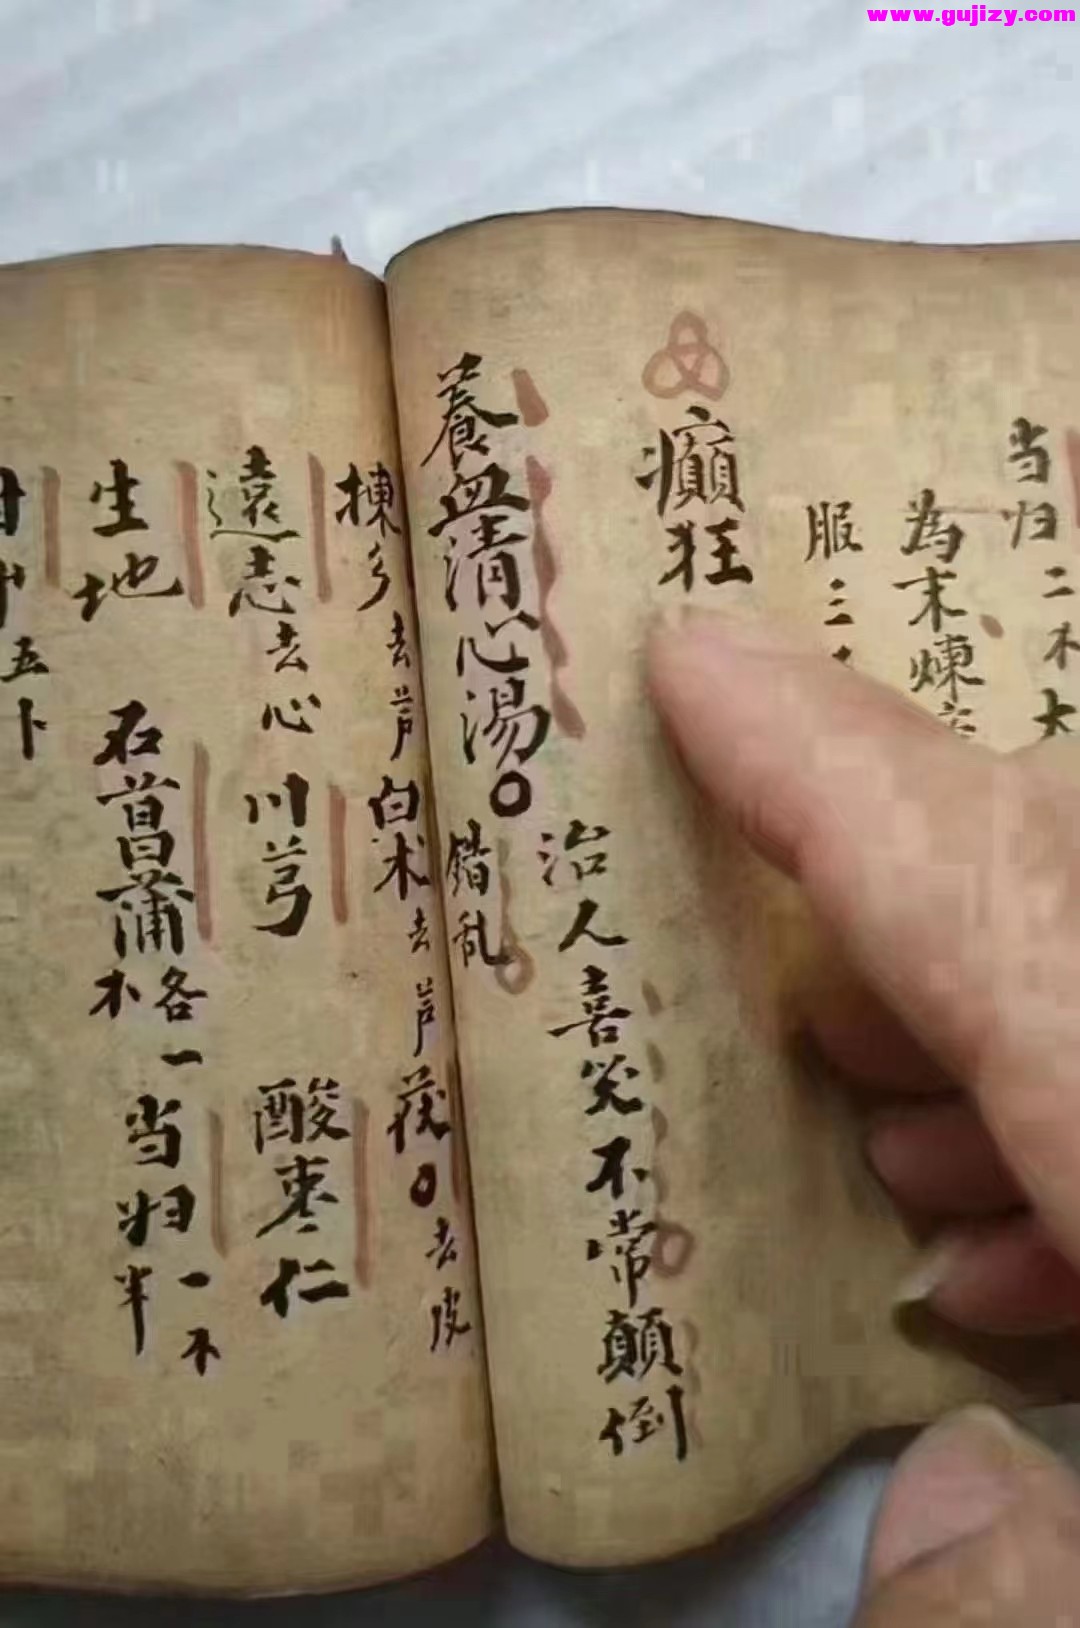 www.gujizy.com
当归二 大
為末煉
服三
癲狂
養血清心湯 治人喜笑不常顛倒
錯乱
揀 去芦 白术去芦 茯 去皮
遠志去心 川芎 酸枣仁
生地 石菖蒲各一 当归一 半
五卜